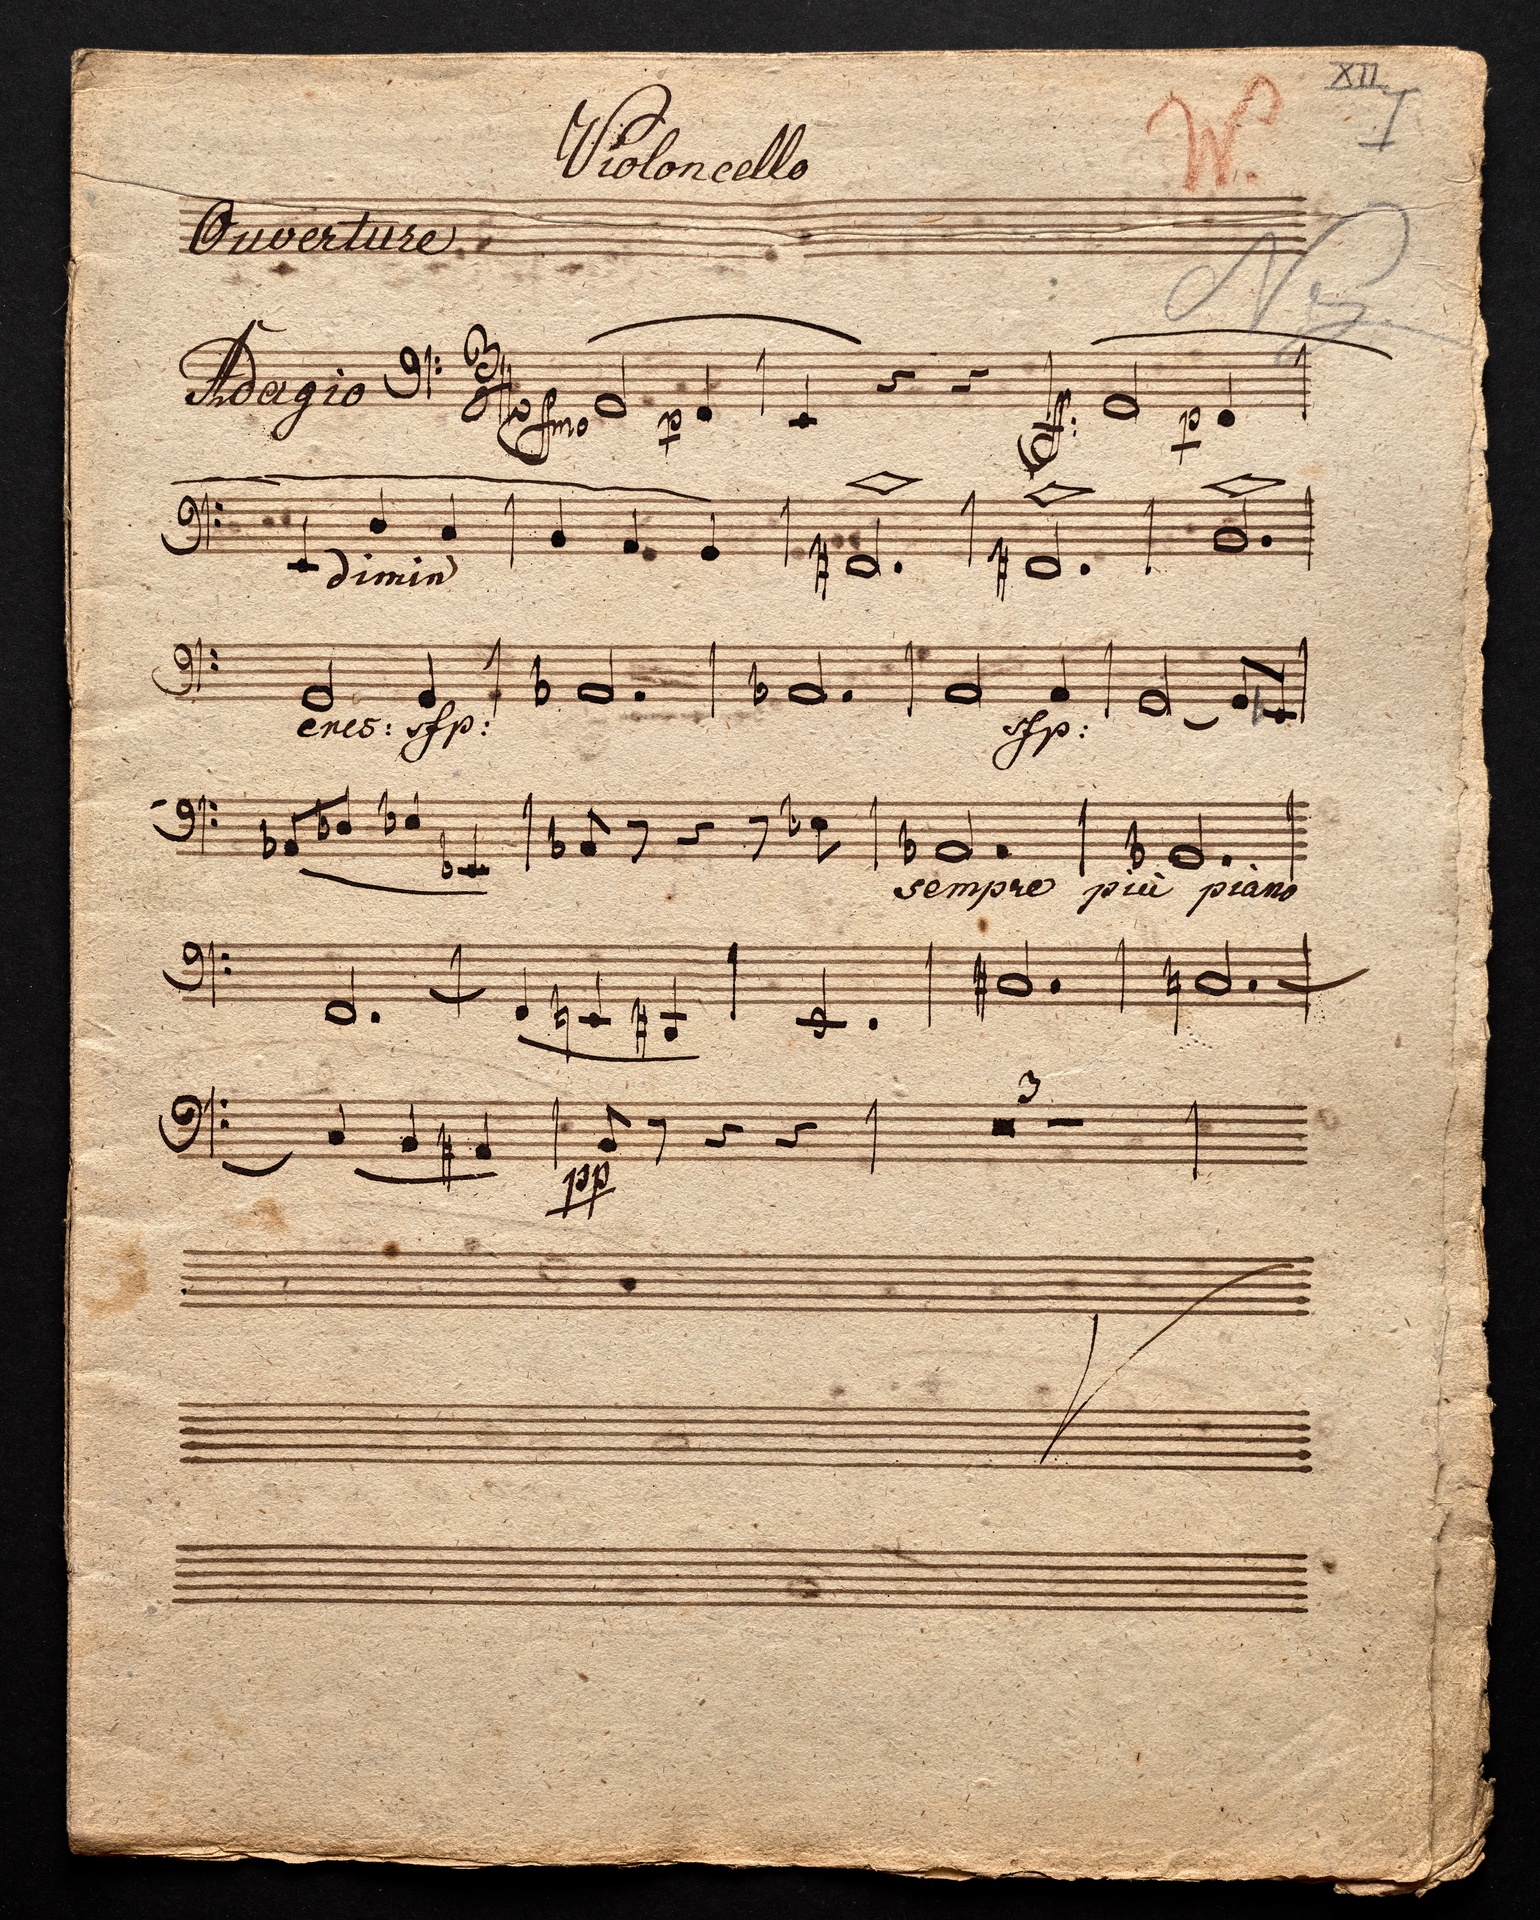 XII
I
W.
Violoncello
Ouverture
Adagio fmo p ff: p
dimin
cres: sfp: sfp:
sempre più piano
3
pp